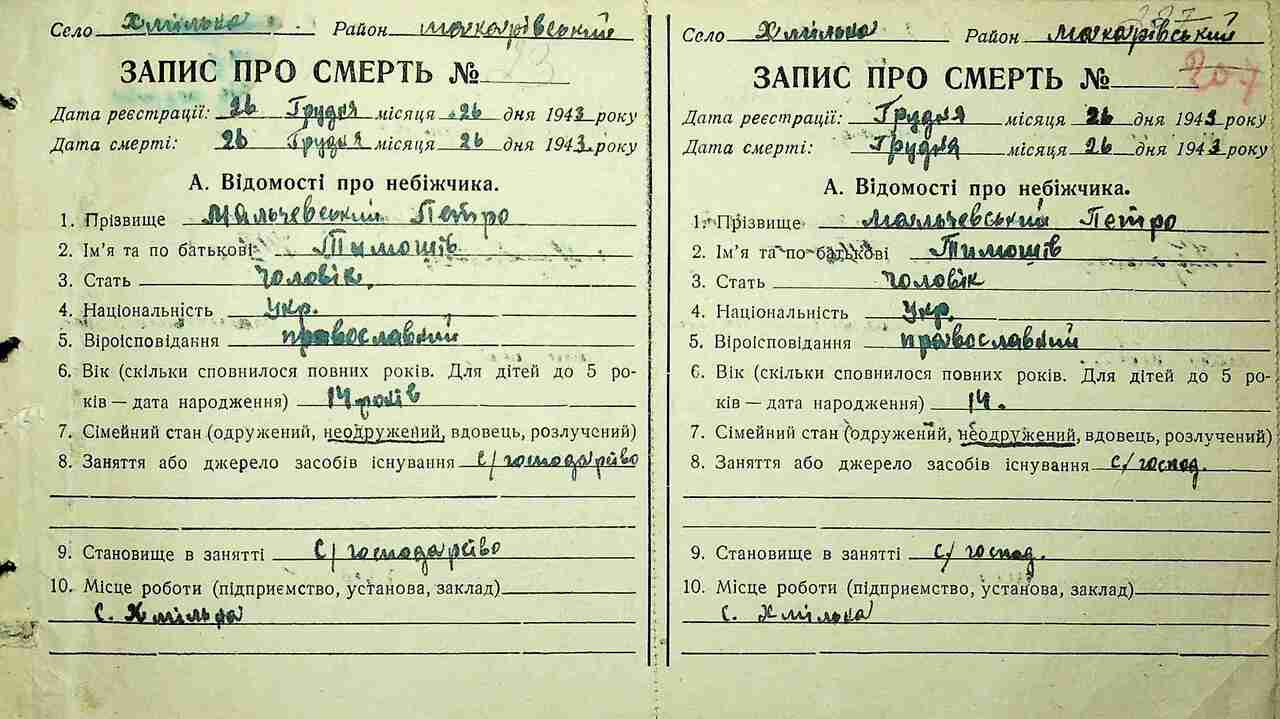 Село Хмілька Район Макарівський
ЗАПИС ПРО СМЕРТЬ № 23
Дата реєстрації: 26 Грудня місяця 26 дня 1943 року
Дата смерті: 26 Грудня місяця 26 дня 1943 року
А. Відомості про небіжчика.
1. Прізвище Мальчевський Петро
2. Ім'я та по батькові Тимошів
3. Стать Чоловік.
4. Національність Укр.
5. Віроісповідання православний
6. Вік (скільки сповнилося повних років. Для дітей до 5 ро-
ків — дата народження) 14 років
7. Сімейний стан (одружений, неодружений, вдовець, розлучений)
8. Заняття або джерело засобів існування с/господарство
9. Становище в занятті С/господарство
10. Місце роботи (підприємство, установа, заклад)
с. Хмілька
Село Хмілька Район Макарівський
ЗАПИС ПРО СМЕРТЬ № 207
Дата реєстрації: Грудня місяця 26 дня 1943 року
Дата смерті: Грудня місяця 26 дня 1943 року
А. Відомості про небіжчика.
1. Прізвище Мальчевський Петро
2. Ім'я та по батькові Тимошів
3. Стать Чоловік
4. Національність Укр.
5. Віроісповідання православний
6. Вік (скільки сповнилося повних років. Для дітей до 5 ро-
ків — дата народження) 14.
7. Сімейний стан (одружений, неодружений, вдовець, розлучений)
8. Заняття або джерело засобів існування с/господ.
9. Становище в занятті с/господ.
10. Місце роботи (підприємство, установа, заклад)
с. Хмілька